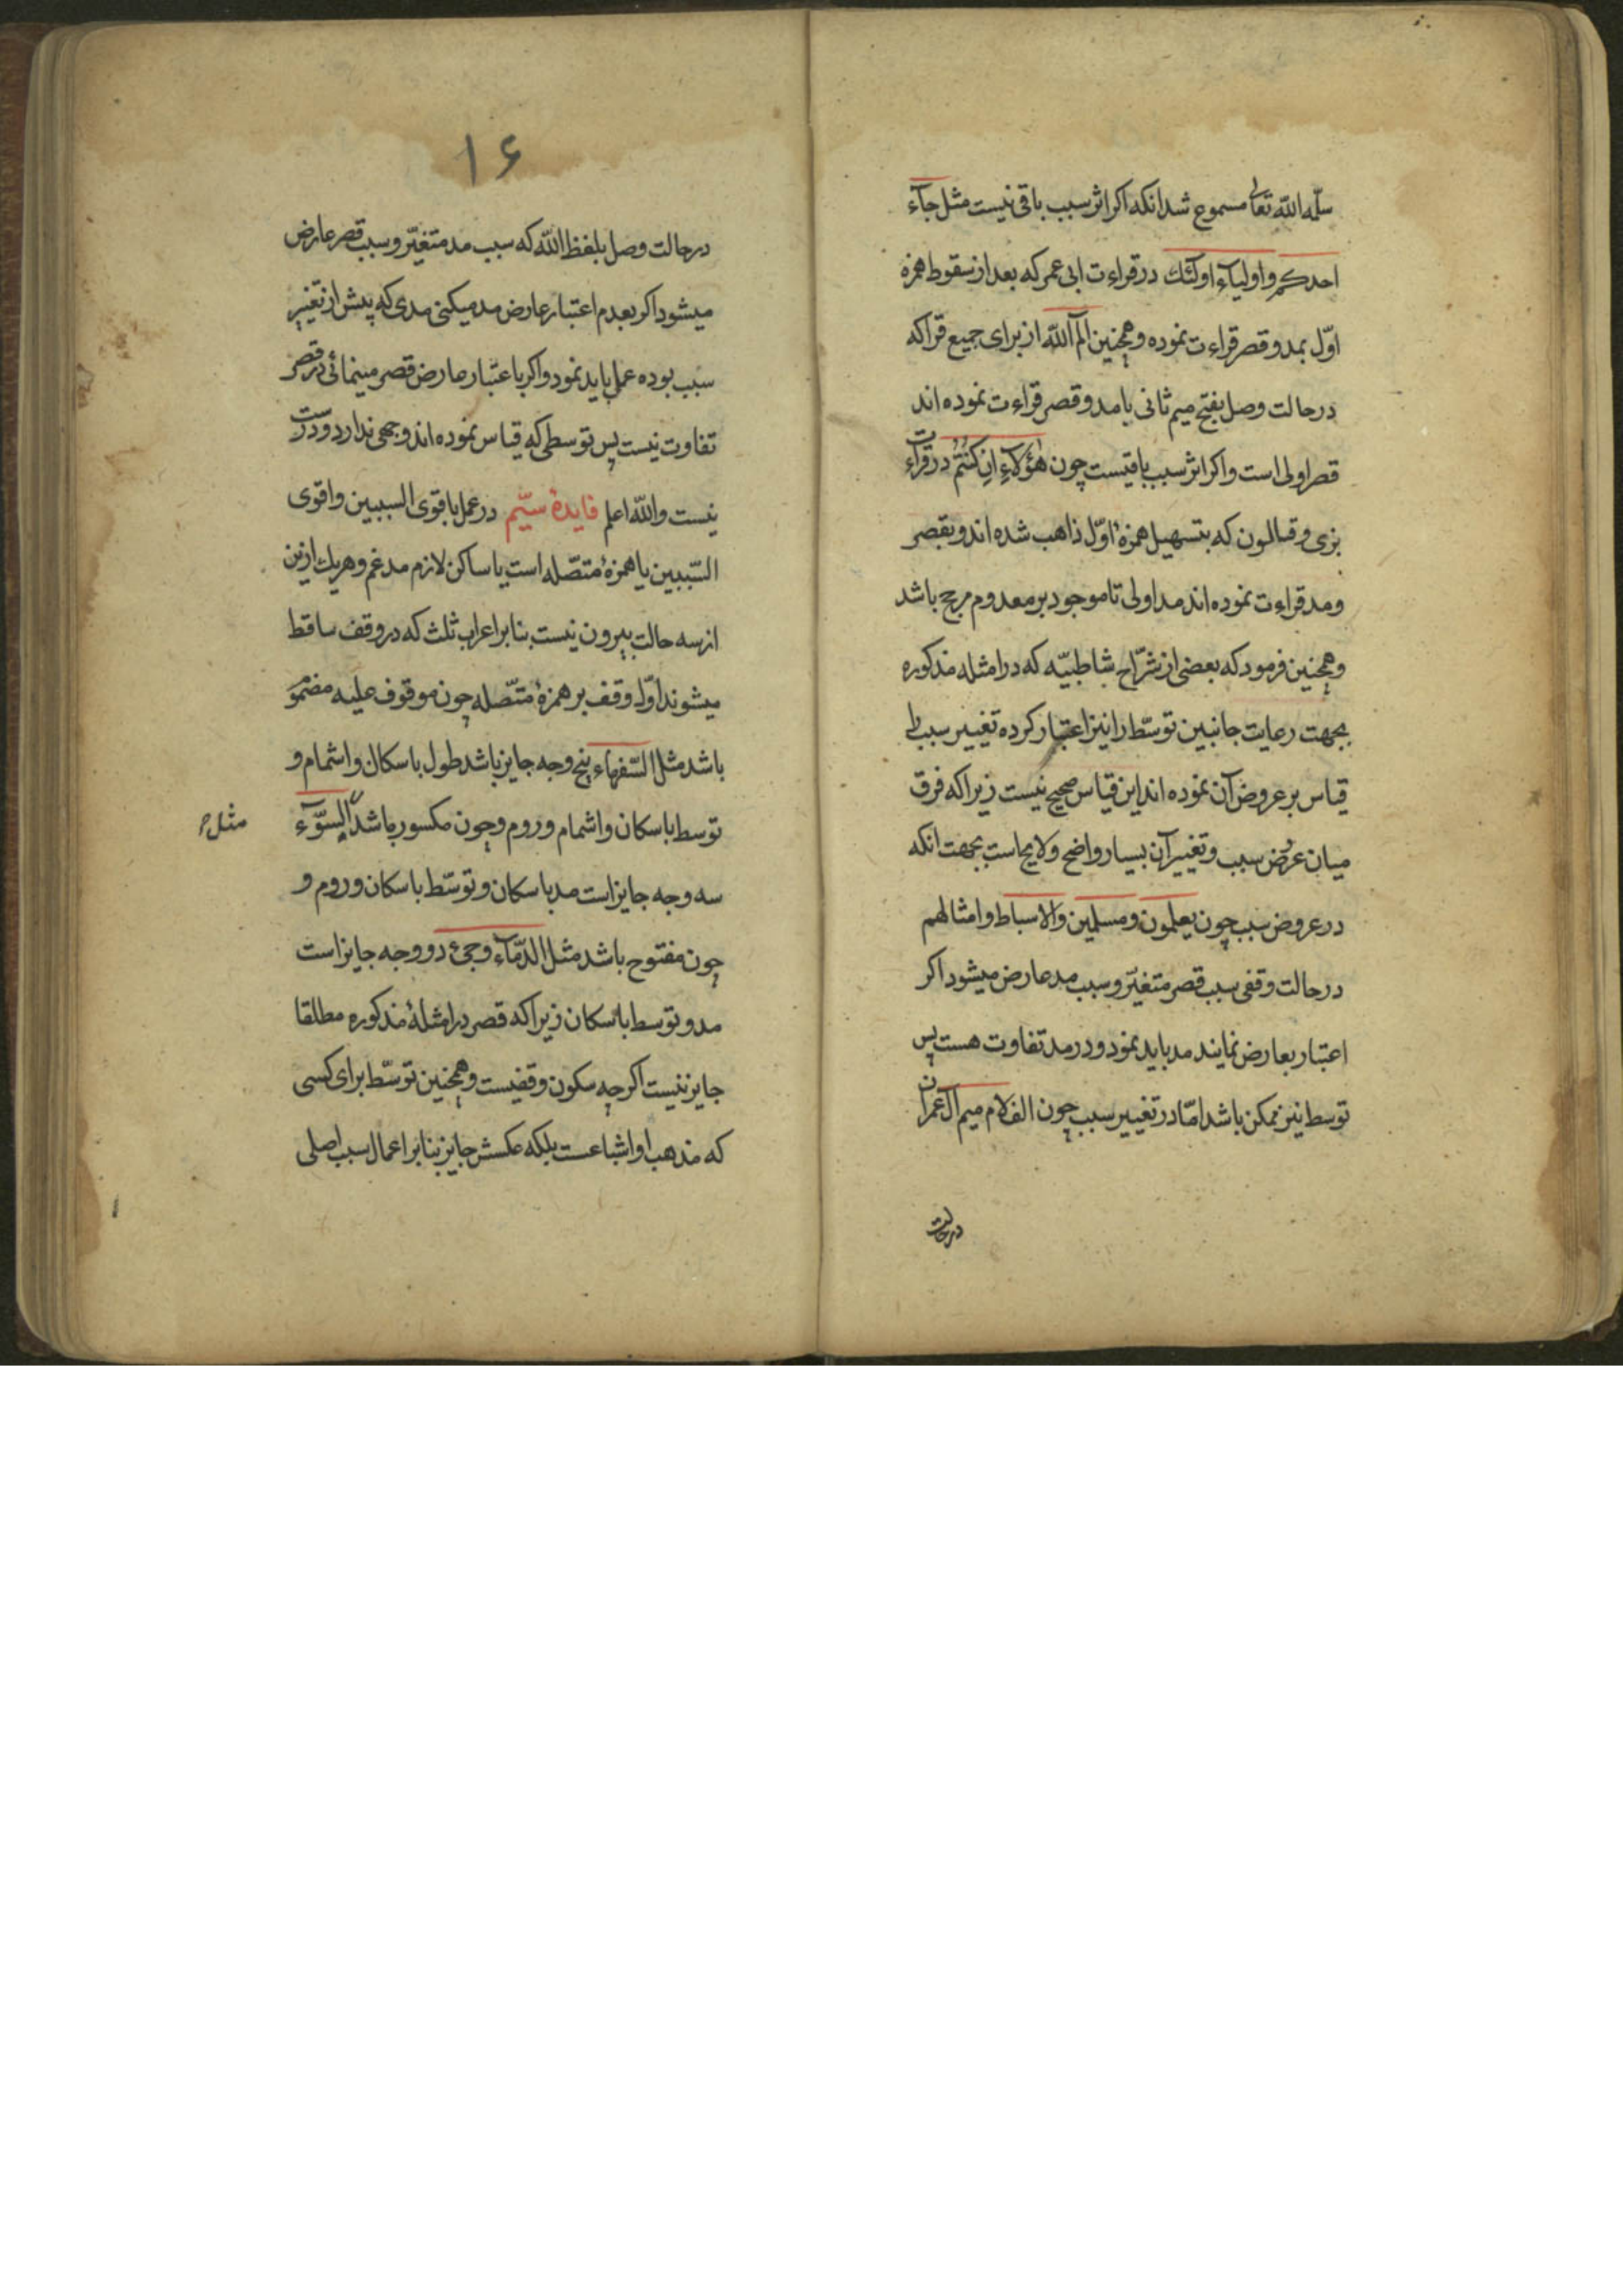 سلمه الله تعالی مسموع شد انکه اکر اثر سبب باقی نیست مثل جآء
احدکم و اولیآء اولٓئك در قراءت ابی عمر که بعد از سقوط همزه
اوّل بمد و قصر قراءت نموده و همچنین المٓ الله از برای جمیع قرا که
در حالت وصل بفتح میم ثانی یا مد و قصر قراءت نموده اند
قصر اولی است و اکر اثر سبب باقیست چون هٰؤلآءِ اِن کُنتُم در قراءت
بزی و قالون که بتسهیل همزهٔ اوّل ذاهب شده اند و بقصر
و مد قراءت نموده اند مد اولی تا موجود بر معدوم مرجح باشد
و همچنین فرمود که بعضی از شرّاح شاطبیّه که در امثله مذکوره
بجهت رعایت جانبین توسّط را نیز اعتبار کرده تغییر سبب را
قیاس بر عروض آن نموده اند این قیاس صحیح نیست زیرا که فرق
میان عرُض سبب و تغییر آن بسیار واضح و لایح است بجهت انکه
در عروض سبب چون یعلمون و مسلمین و الاسباط و امثالهم
در حالت وقفی سبب قصر متغیّر و سبب مد عارض میشود اکر
اعتبار بعارض نمایند مد باید نمود و در مد تفاوت هست پس
توسط نیز ممکن باشد امّا در تغییر سبب چون الف لام میم آل عمران
درحالت
۱۶
در حالت وصل بلفظ الله که سبب مد متغیّر و سبب قصر عارض
میشود اکر بعدم اعتبار عارض مد میکنی مدی که پیش از تغییر
سبب بوده عمل باید نمود و اکر باعتبار عارض قصر مینمائی در قصر
تفاوت نیست پس توسطی که قیاس نموده اند وجهی ندارد و درست
نیست والله اعلم فایدهٔ سیّم در عمل باقوی السببین و اقوی
السّببین یا همزهٔ متصّله است یا ساکن لازم مدغم و هریك ازین
از سه حالت بیرون نیست بنا بر اعراب ثلث که در وقف ساقط
میشوند اوّل وقف بر همزهٔ متّصله چون موقوف علیه مضموم
باشد مثل السّفهاء پنج وجه جایز باشد طول باسکان و اشمام و
توسط باسکان و اشمام و روم و چون مکسور باشد السّوٓء
مثل
سه وجه جایز است مد باسکان و توسّط باسکان و روم و
چون مفتوح باشد مثل الدّمآء و جیء دو وجه جایز است
مد و توسط باسکان زیرا که قصر در امثلهٔ مذکوره مطلقا
جایز نیست اکر چه سکون وقفیست و همچنین توسّط برای کسی
که مذهب او اشباعست بلکه عکسش جایز بنا بر اعمال سبب اصلی